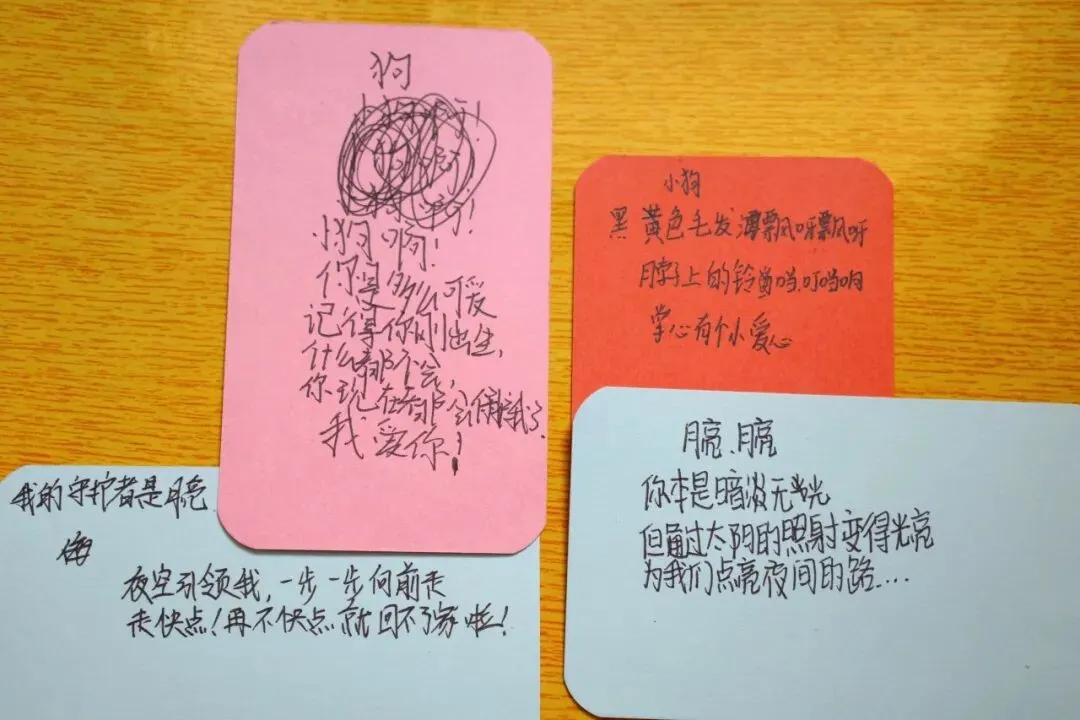 狗
小狗啊!
你是多么可爱
记得你刚出生,
什么都不会,
你现在都会保护我了.
我爱你!
小狗
黑黄色毛发飘呀飘呀
脖子上的铃铛当.叮当响
掌心有个小爱心
我的守护者是月亮
夜空引领我,一步一步向前走
走快点!再不快点就回不了家啦!
月亮.月亮
你本是暗淡无光
但通过太阳的照射变得光亮
为我们点亮夜间的路....